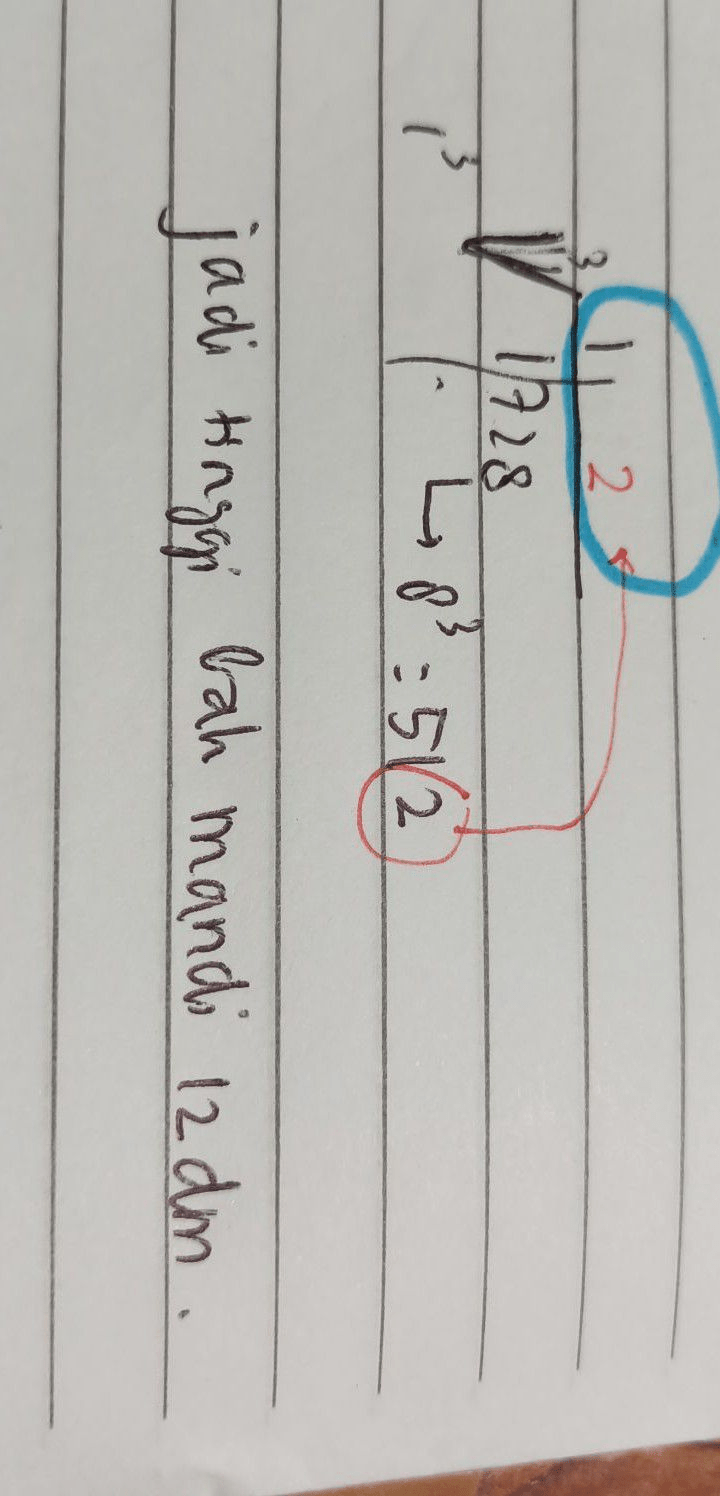 1 2
³√1728
1³ ↳ 8³ = 512
jadi tinggi bak mandi 12 dm.